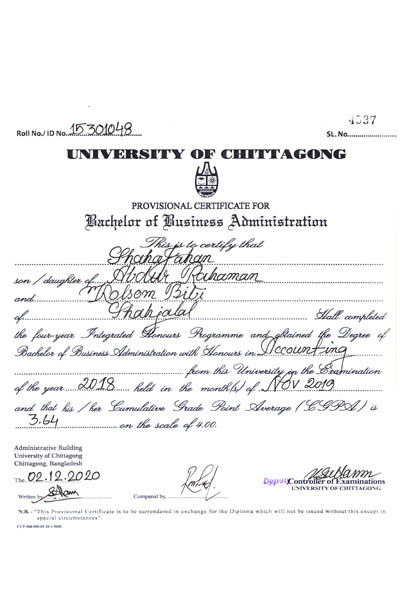 4537
Roll No./ ID No. 15301048
SL. No.
UNIVERSITY OF CHITTAGONG
PROVISIONAL CERTIFICATE FOR
Bachelor of Business Administration
This is to certify that
Shahajahan
son / daughter of Abdur Rahaman
and Kolsom Bibi
of Shahjalal Hall completed
the four-year Integrated Honours Programme and obtained the Degree of
Bachelor of Business Administration with Honours in Accounting
from this University in the Examination
of the year 2018 held in the month(s) of Nov 2019
and that his / her Cumulative Grade Point Average (CGPA) is
3.64 on the scale of 4.00.
Administrative Building
University of Chittagong
Chittagong, Bangladesh
The 02.12.2020
Written by
Compared by
Deputy Controller of Examinations
UNIVERSITY OF CHITTAGONG
N.B. - "This Provisional Certificate is to be surrendered in exchange for the Diploma which will not be issued without this except in
special circumstances".